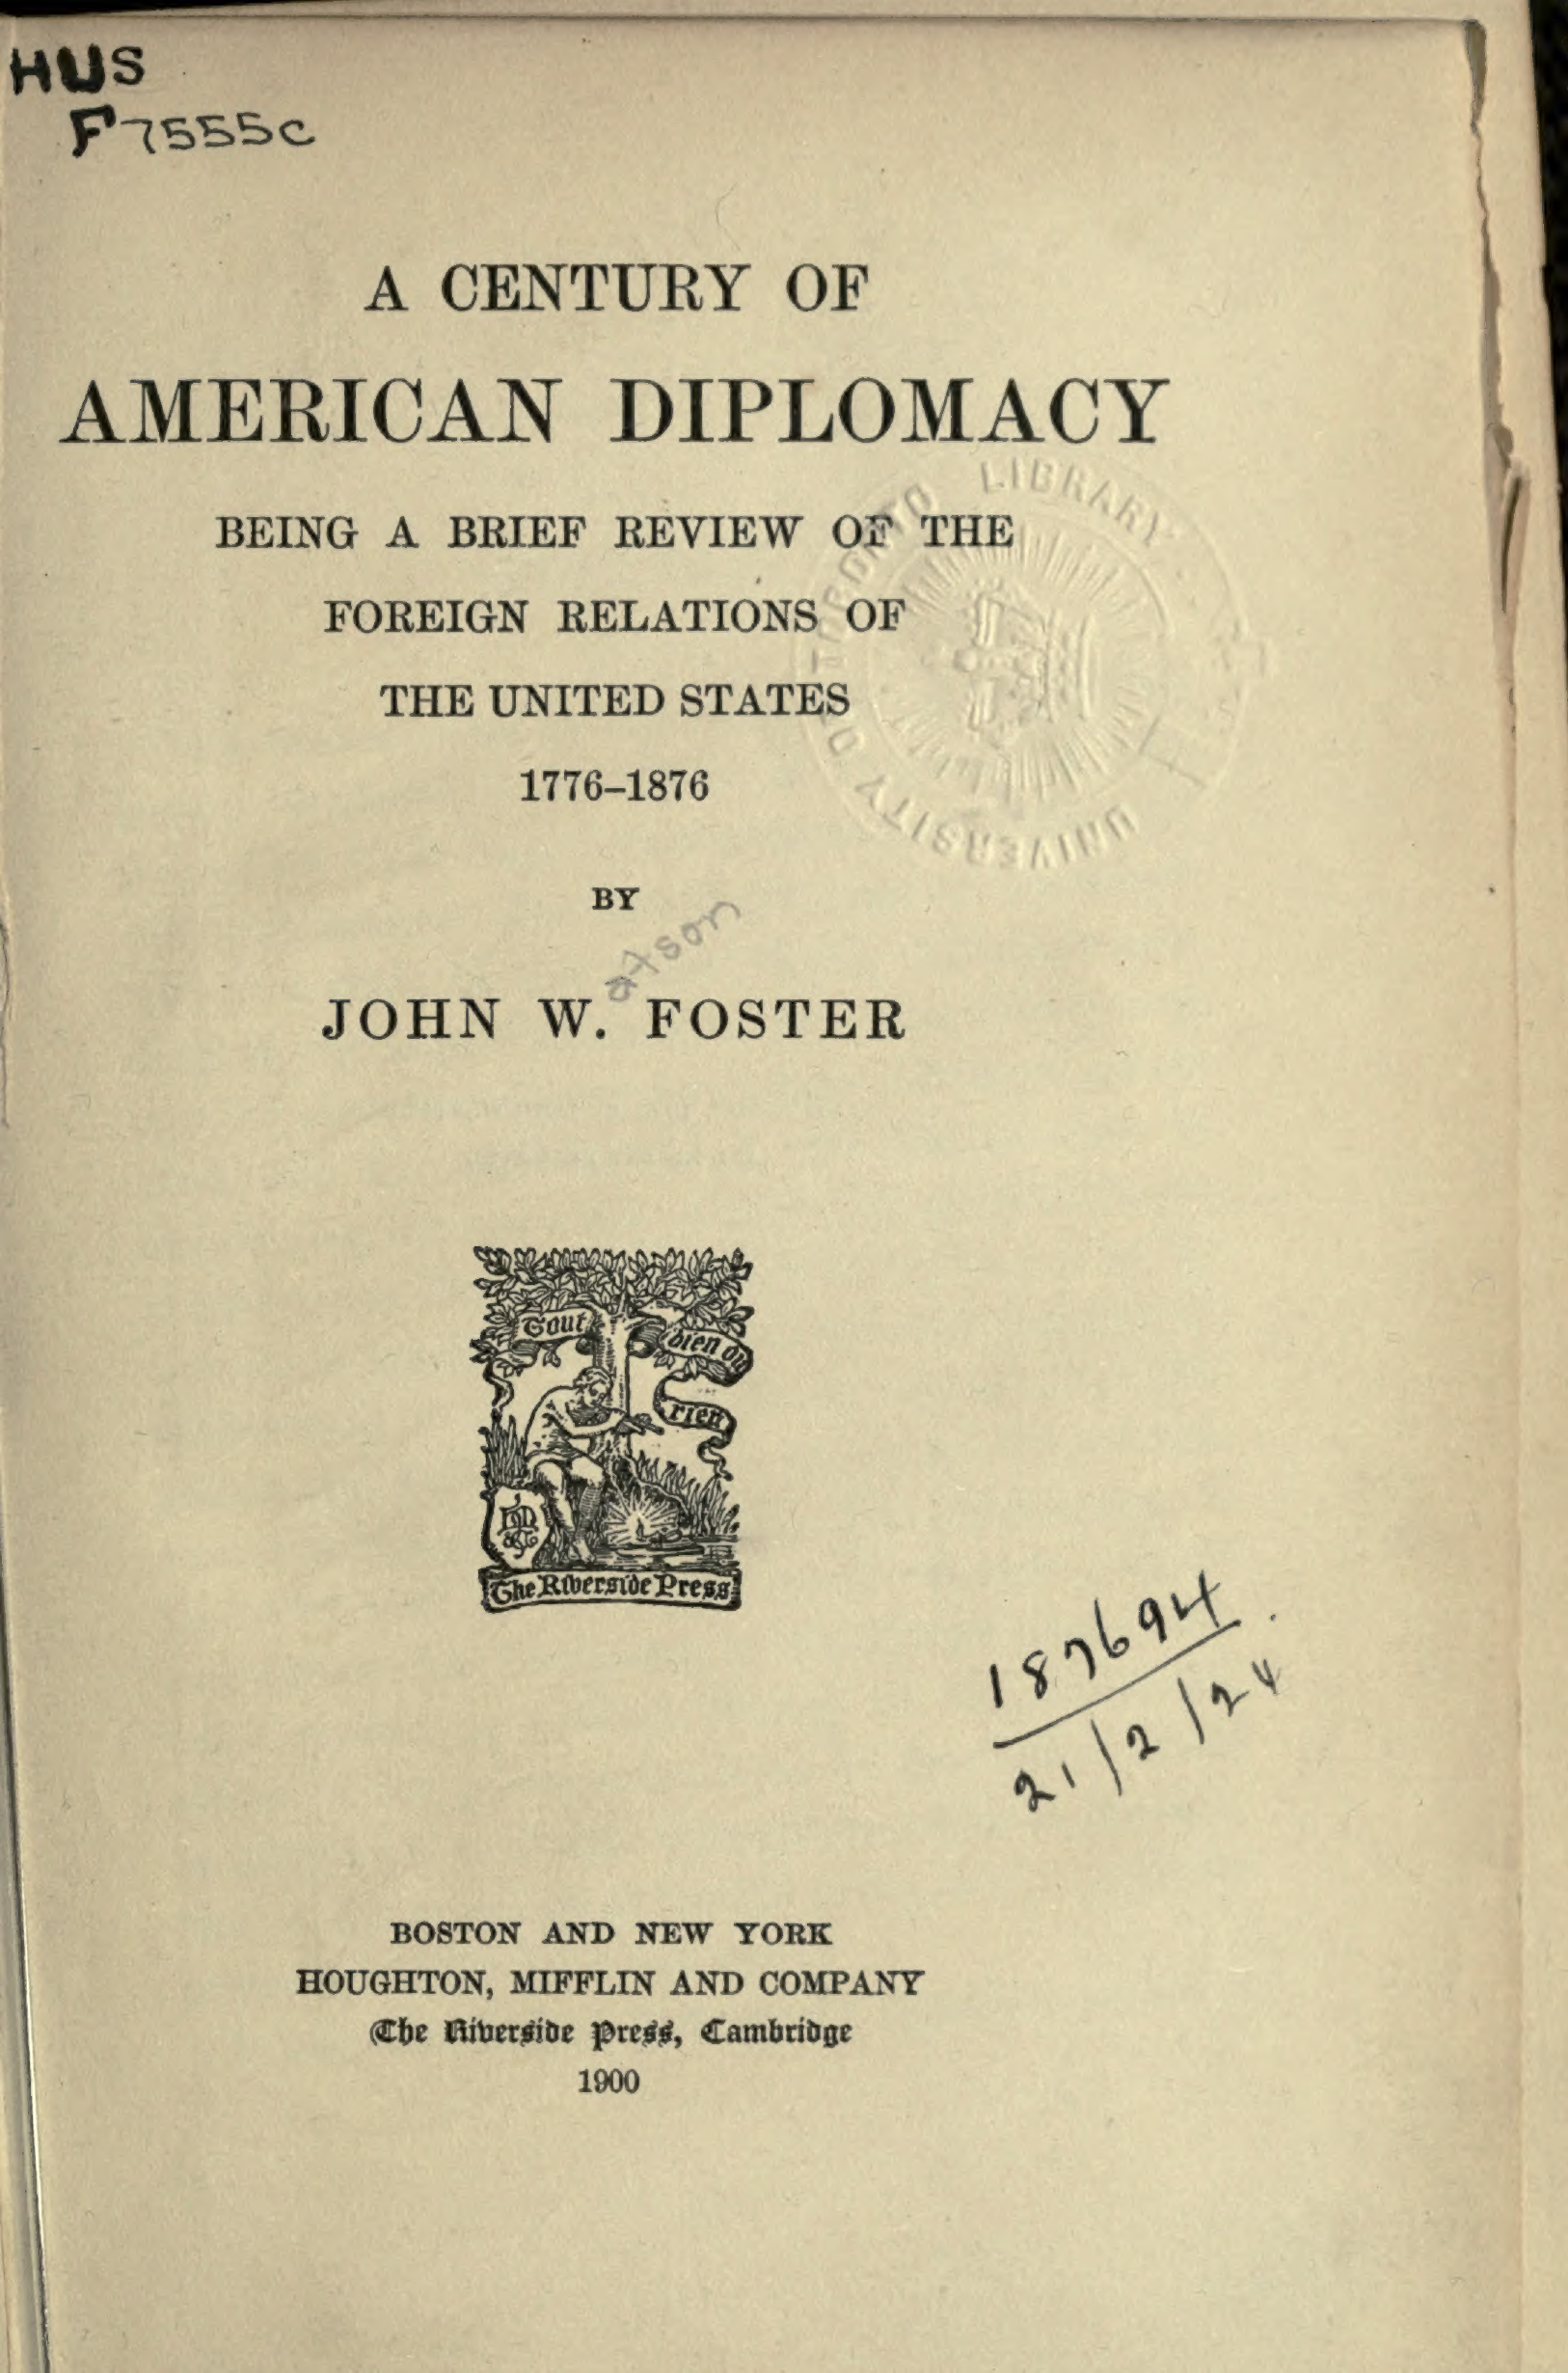 HUS
F7555c
A CENTURY OF
AMERICAN DIPLOMACY
BEING A BRIEF REVIEW OF THE
FOREIGN RELATIONS OF
THE UNITED STATES
1776–1876
BY
atson
JOHN W. FOSTER
UNIVERSITY OF TORONTO LIBRARY
Tout
bien ou
rien
The Riverside Press
187694
21/2/24
BOSTON AND NEW YORK
HOUGHTON, MIFFLIN AND COMPANY
The Riverside Press, Cambridge
1900